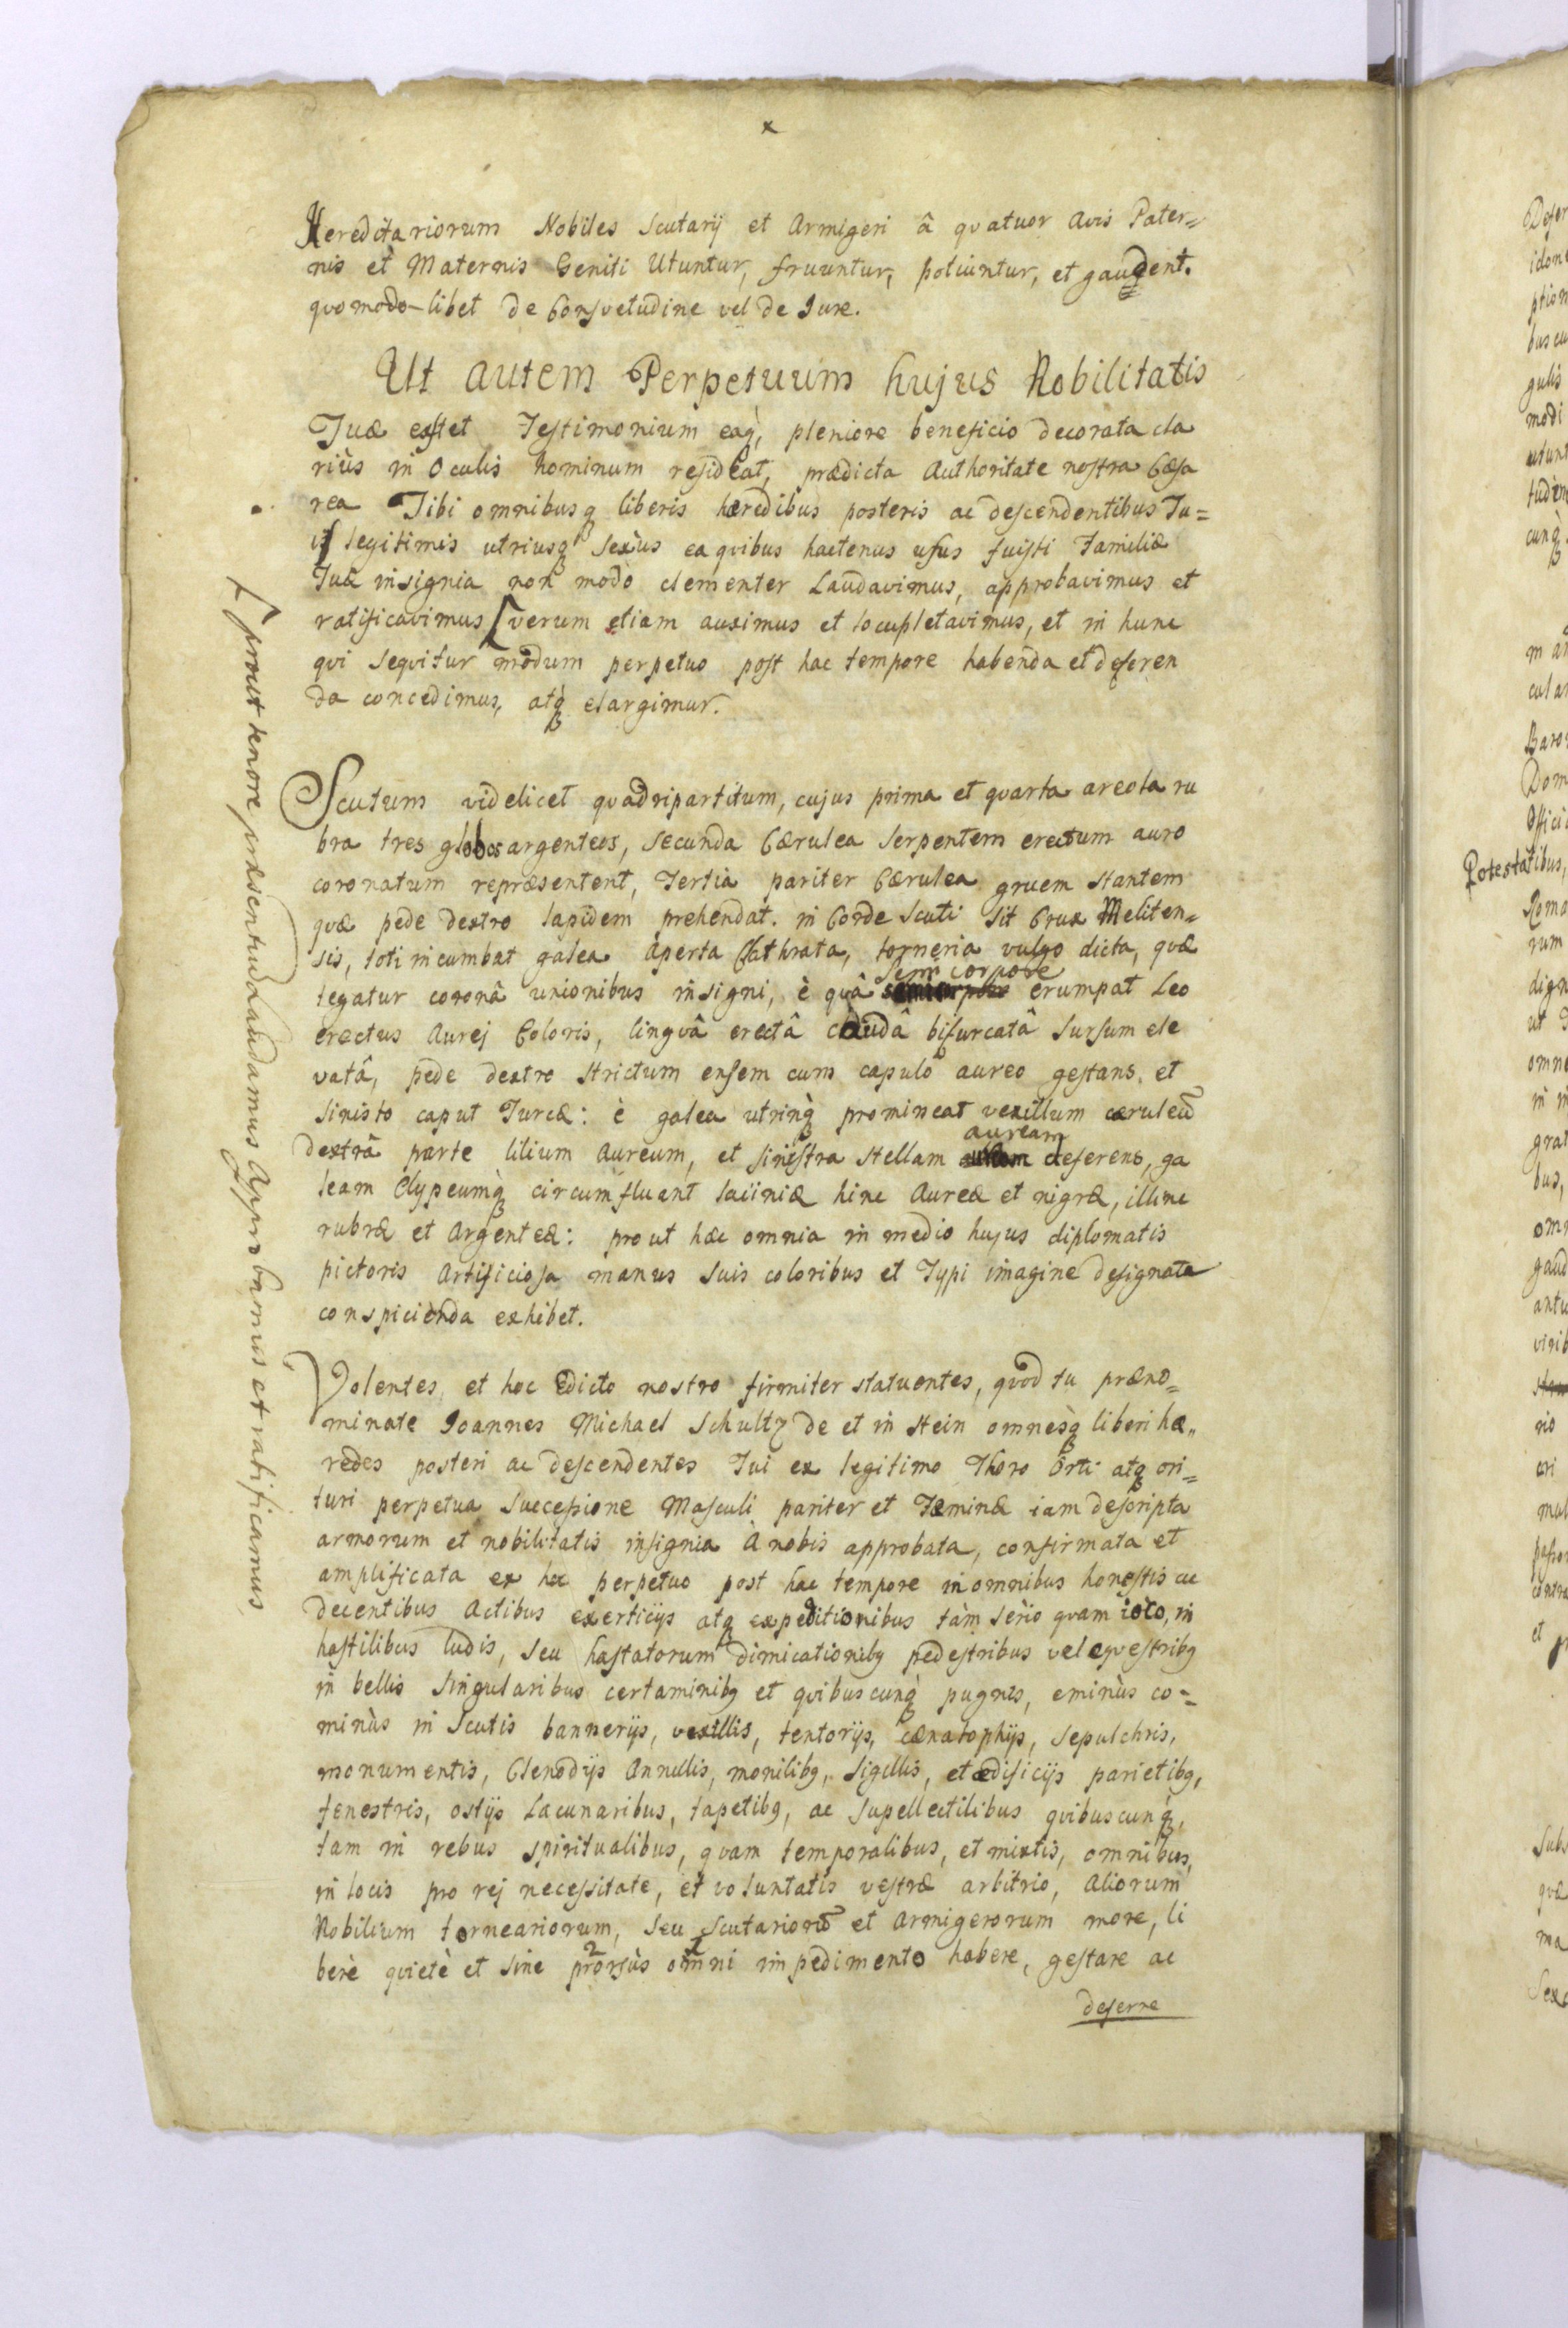 x
Hereditariorum Nobiles Scutarij et Armigeri â quatuor Avis Pater=
nis et Maternis Geniti Utuntur, fruuntur, potiuntur, et gaudent.
quomodo-libet de Consvetudine vel de Iure.
Ut autem Perpetuum hujus Nobilitatis
Tuæ esstet Testimonium eaq̀, pleniore beneficio decorata cla
riùs in Oculis hominum resideat, prædicta Authoritate nostra Cæsa
rea Tibi omnibusq liberis hæredibus posteris ac descendentibus Tu=
is legitimis utriusq Sexùs ea quibus hactenus usus fuisti Familiæ
Tuæ insignia non modò clementer Laudavimus, approbavimus et
ratificavimus [ verum etiam auximus et locupletavimus, et in hunc
qui sequitur modum perpetuo post hac tempore habenda et deferen
da concedimus, atq̀ elargimur.
[ prout tenore præsentiũ Laudamus Approbamus et ratificamus
Scutum videlicet quadripartitum, cujus prima et quarta areola ru
bra tres globos argenteos, secunda Cærulea Serpentem erectum auro
coronatum repræsentent, Tertia pariter Cærulea gruem stantem
quæ pede dextro lapidem prehendat. in Corde Scuti sit Crux Meliten=
sis, toti incumbat galea Aperta Clathrata, torneria vulgo dicta, quæ
semi corpore
tegatur coronâ unionibus insigni, è quâ erumpat Leo
erectus Aurej Coloris, linguâ erectâ caudâ bifurcatâ sursum ele
vatâ, pede dextro strictum ensem cum capulo aureo gestans, et
sinisto caput Turcæ: è galea utrinq̀ promineat vexillum cæruleũ
auream
dextrâ parte lilium Aureum, et sinistra stellam deferens, ga
leam Clypeumq̀ circumfluant laciniæ hinc Aureæ et nigræ, illinc
rubræ et Argenteæ: prout hæc omnia in medio hujus diplomatis
pictoris Artificiosa manus suis coloribus et Typi imagine designata
conspicienda exhibet.
Volentes et hoc Edicto nostro firmiter statuentes, quod tu præno=
minate Ioannes Michael Schultz de et in Stein omnesq̀ liberi hæ=
redes posteri ac descendentes Tui ex legitimo Thoro Orti atq ori=
turi perpetua Successione Masculi pariter et Fæminæ iam descripta
armorum et nobilitatis insignia à nobis approbata, confirmata et
amplificata ex hoc perpetuo post hac tempore in omnibus honestis ac
decentibus Actibus exerticijs atq expeditionibus tàm Sèrio quam ioco, in
hastilibus ludis, seu hastatorum dimicationibq pedestribus vel equestribq
in bellis Singularibus certaminibq et quibuscunq̀ pugnis, eminùs co=
minùs in Scutis bannerijs, vexillis, tentorijs, cænatophijs, Sepulchris,
monumentis, Clenodijs Annullis, monilibq, Sigillis, et ædificijs parietibq,
fenestris, ostijs Lacunaribus, tapetibq, ac Supellectilibus quibuscunq̀,
tam in rebus spiritualibus, quam temporalibus, et mixtis, omnibus,
in locis pro rej necessitate, et voluntatis vestræ arbitrio, Aliorum
Nobilium torneariorum, seu Scutariorũ et Armigerorum more, li
2 1
berè quietè et sine prorsùs omni impedimento habere, gestare ac
deferre
Potestatibus,